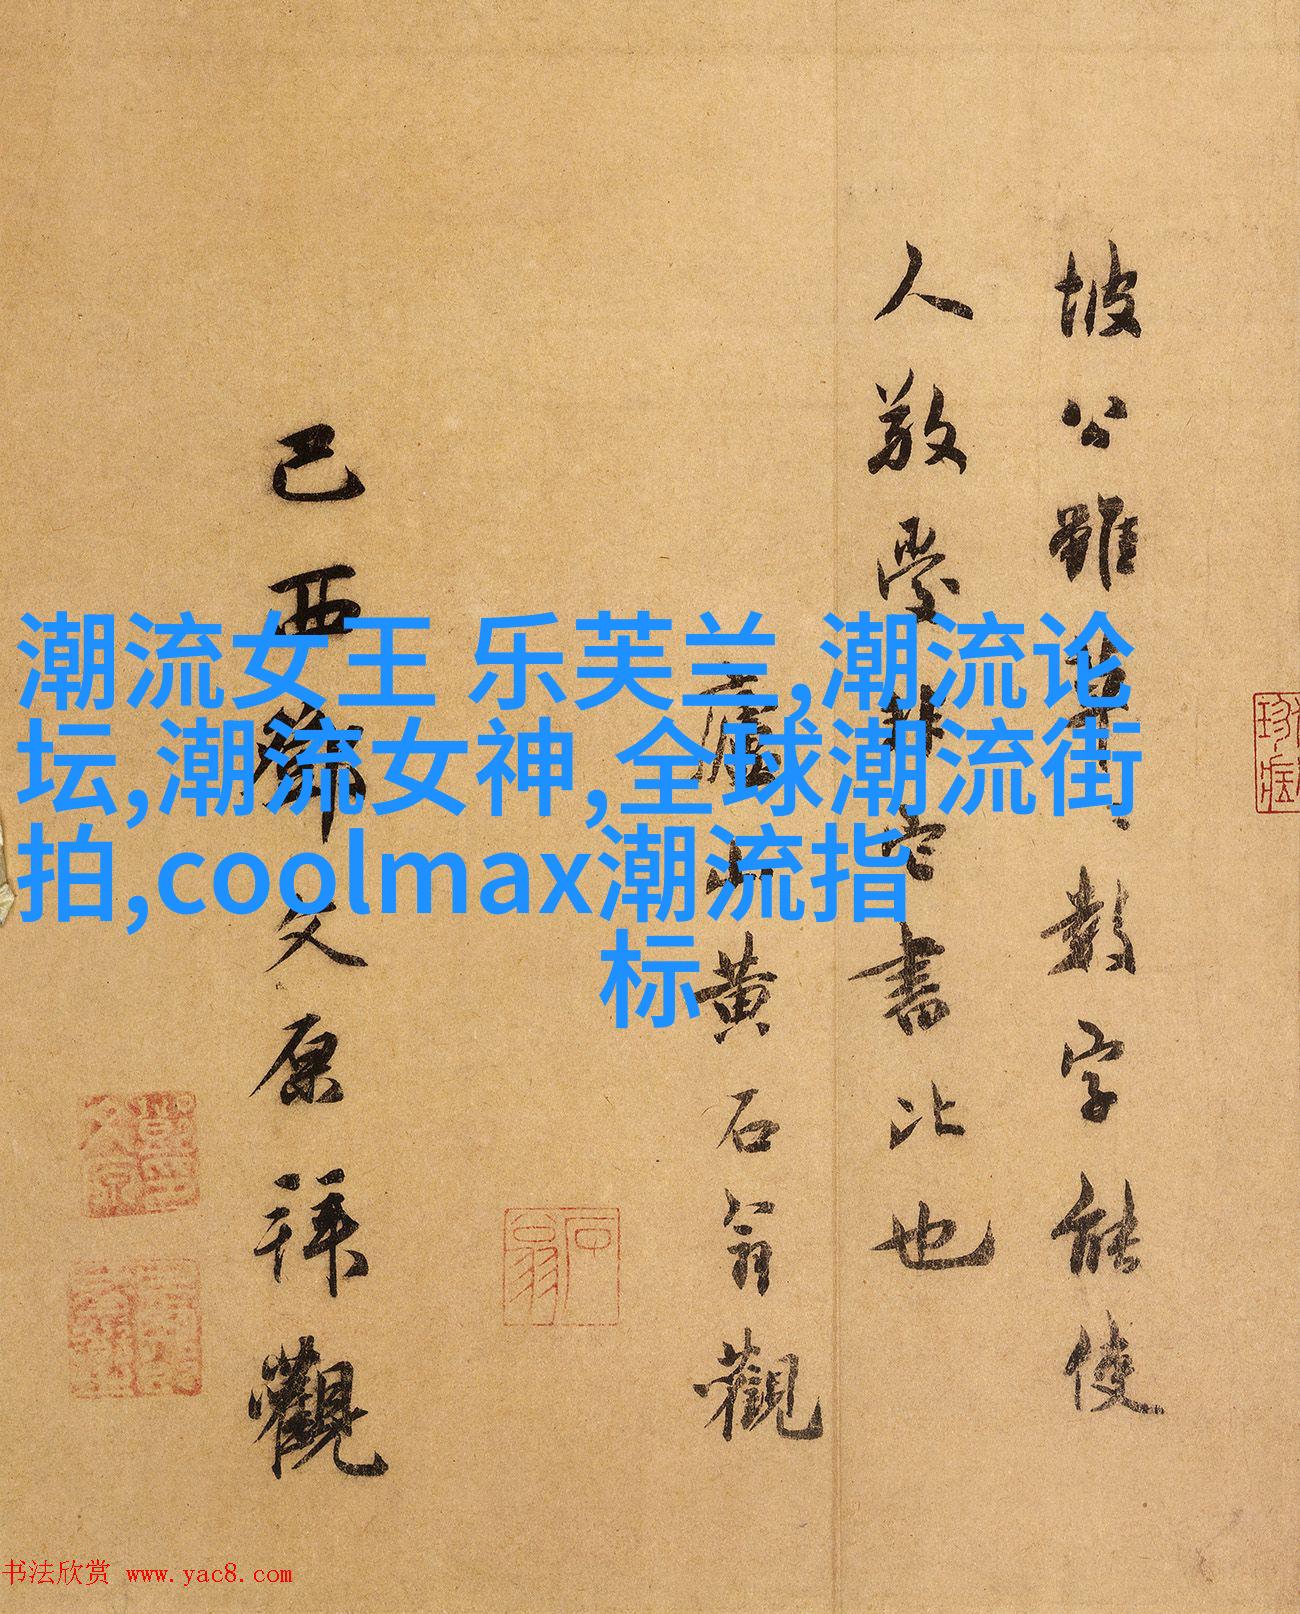 坡公雖草草數字能使
人敬愛
書如此也
廬山黄石翁觀
己酉鄧文原拜觀
潮流女王 乐芙兰,潮流论
坛,潮流女神,全球潮流街
拍,coolmax潮流指
标
石翁
书法欣赏 www.yac8.com